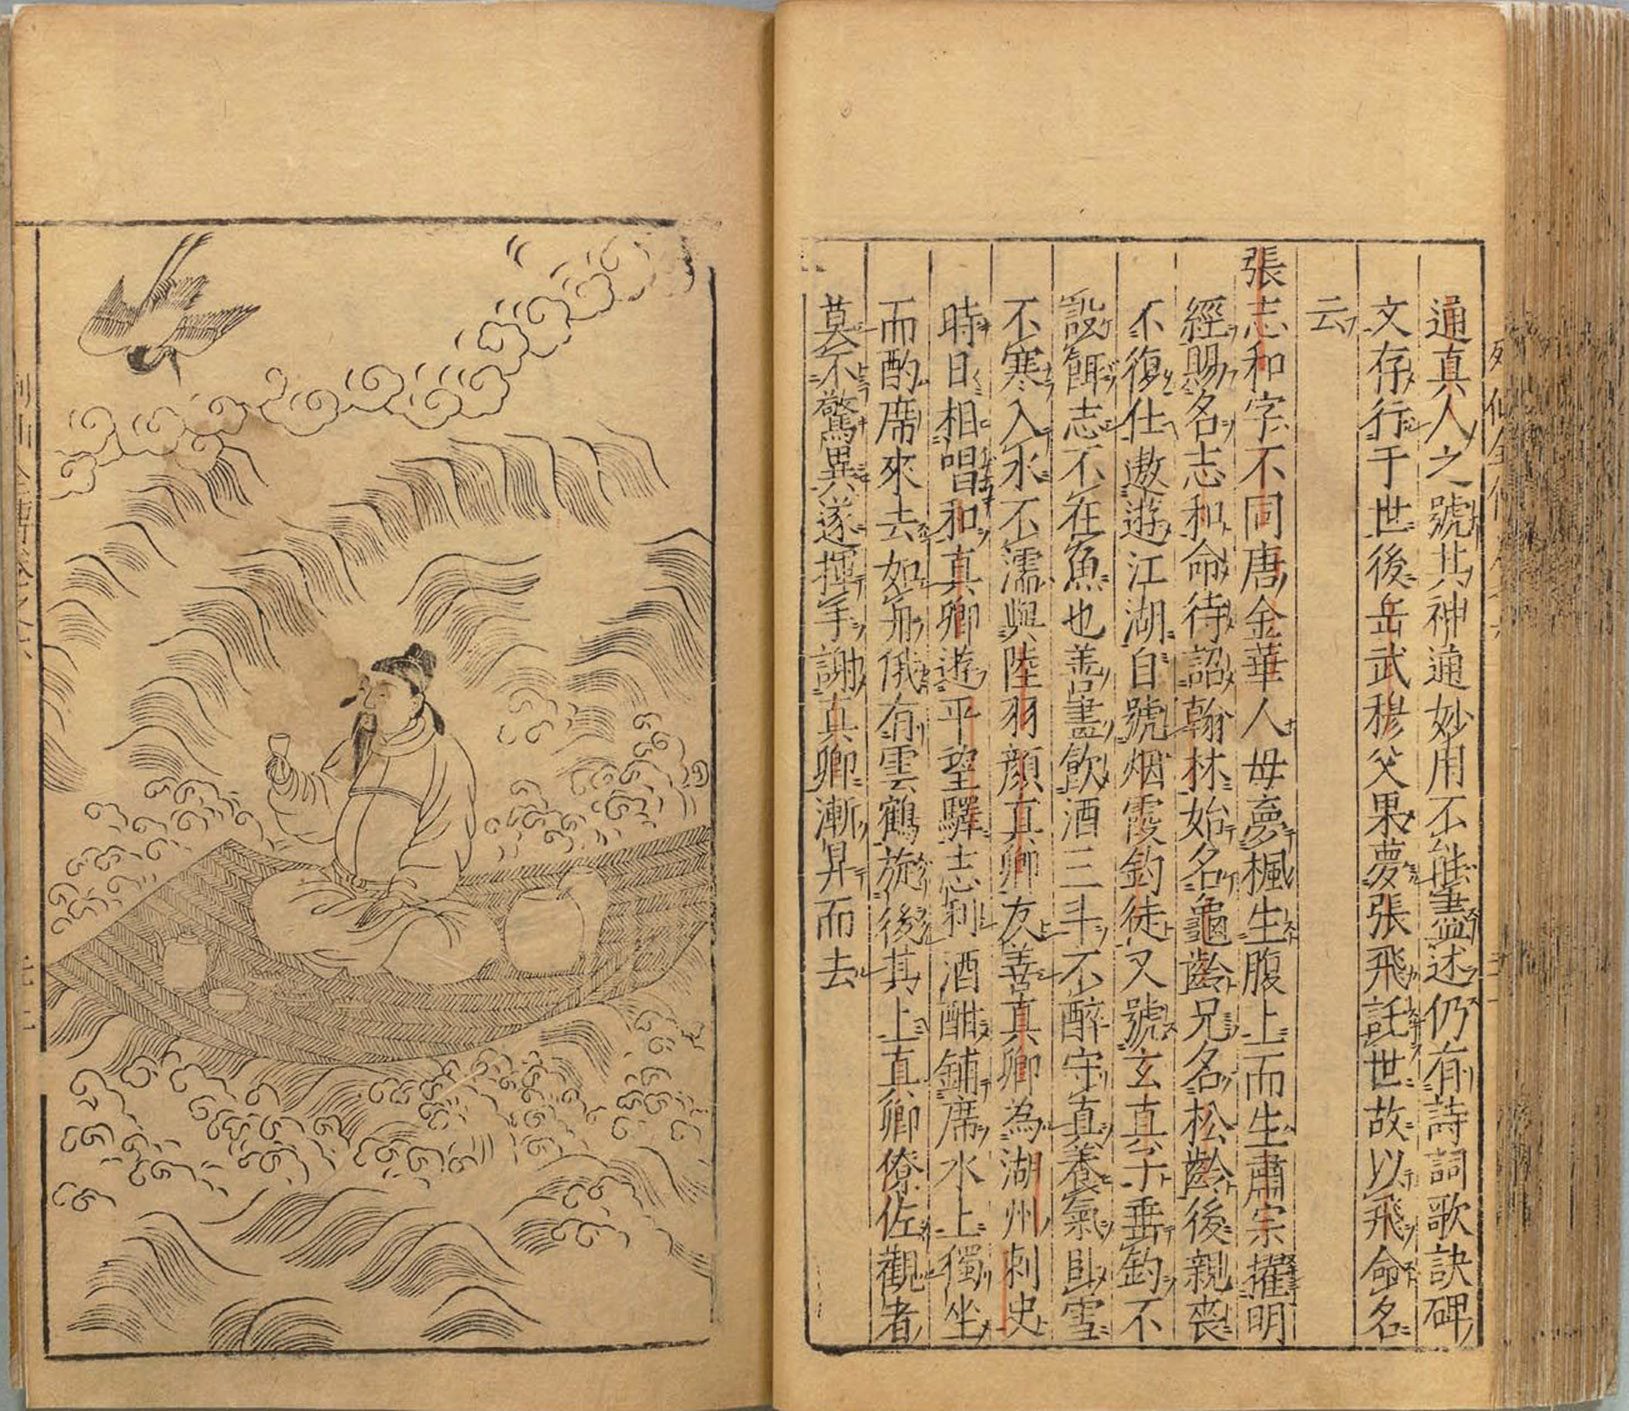 通真人之號其神通妙用不能盡述仍有詩詞歌訣碑
文存行于世後岳武穆父果夢張飛託世故以飛命名
云
張志和字不同唐金華人母夢楓生腹上而生肅宗擢明
經賜名志和命待詔翰林始名龜齡兄名松齡後親喪
不復仕遨遊江湖自號烟霞釣徒又號玄真子垂釣不
設餌志不在魚也善畫飲酒三斗不醉守真養氣臥雪
不寒入水不濡與陸羽顏真卿友善真卿為湖州刺史
時日相唱和真卿遊平望驛志和酒酣鋪席水上獨坐
而酌席來去如舟俄有雲鶴旋後其上真卿僚佐觀者
莫不驚異遂揮手謝真卿漸昇而去